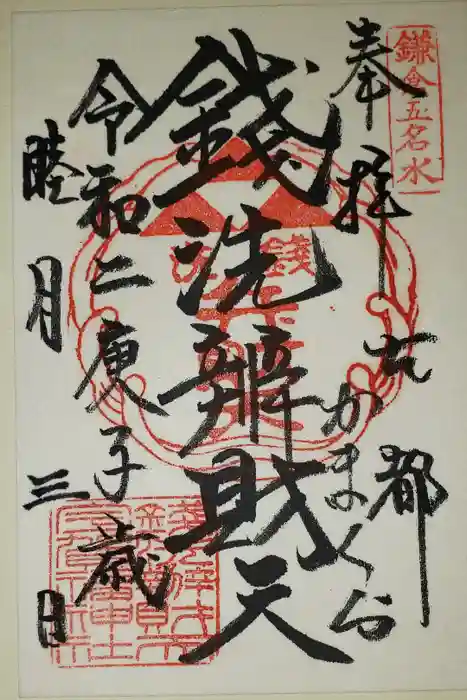 鎌倉五名水
奉拝
古都
かまくら
銭洗辨財天
令和二庚子歳
睦月
三日